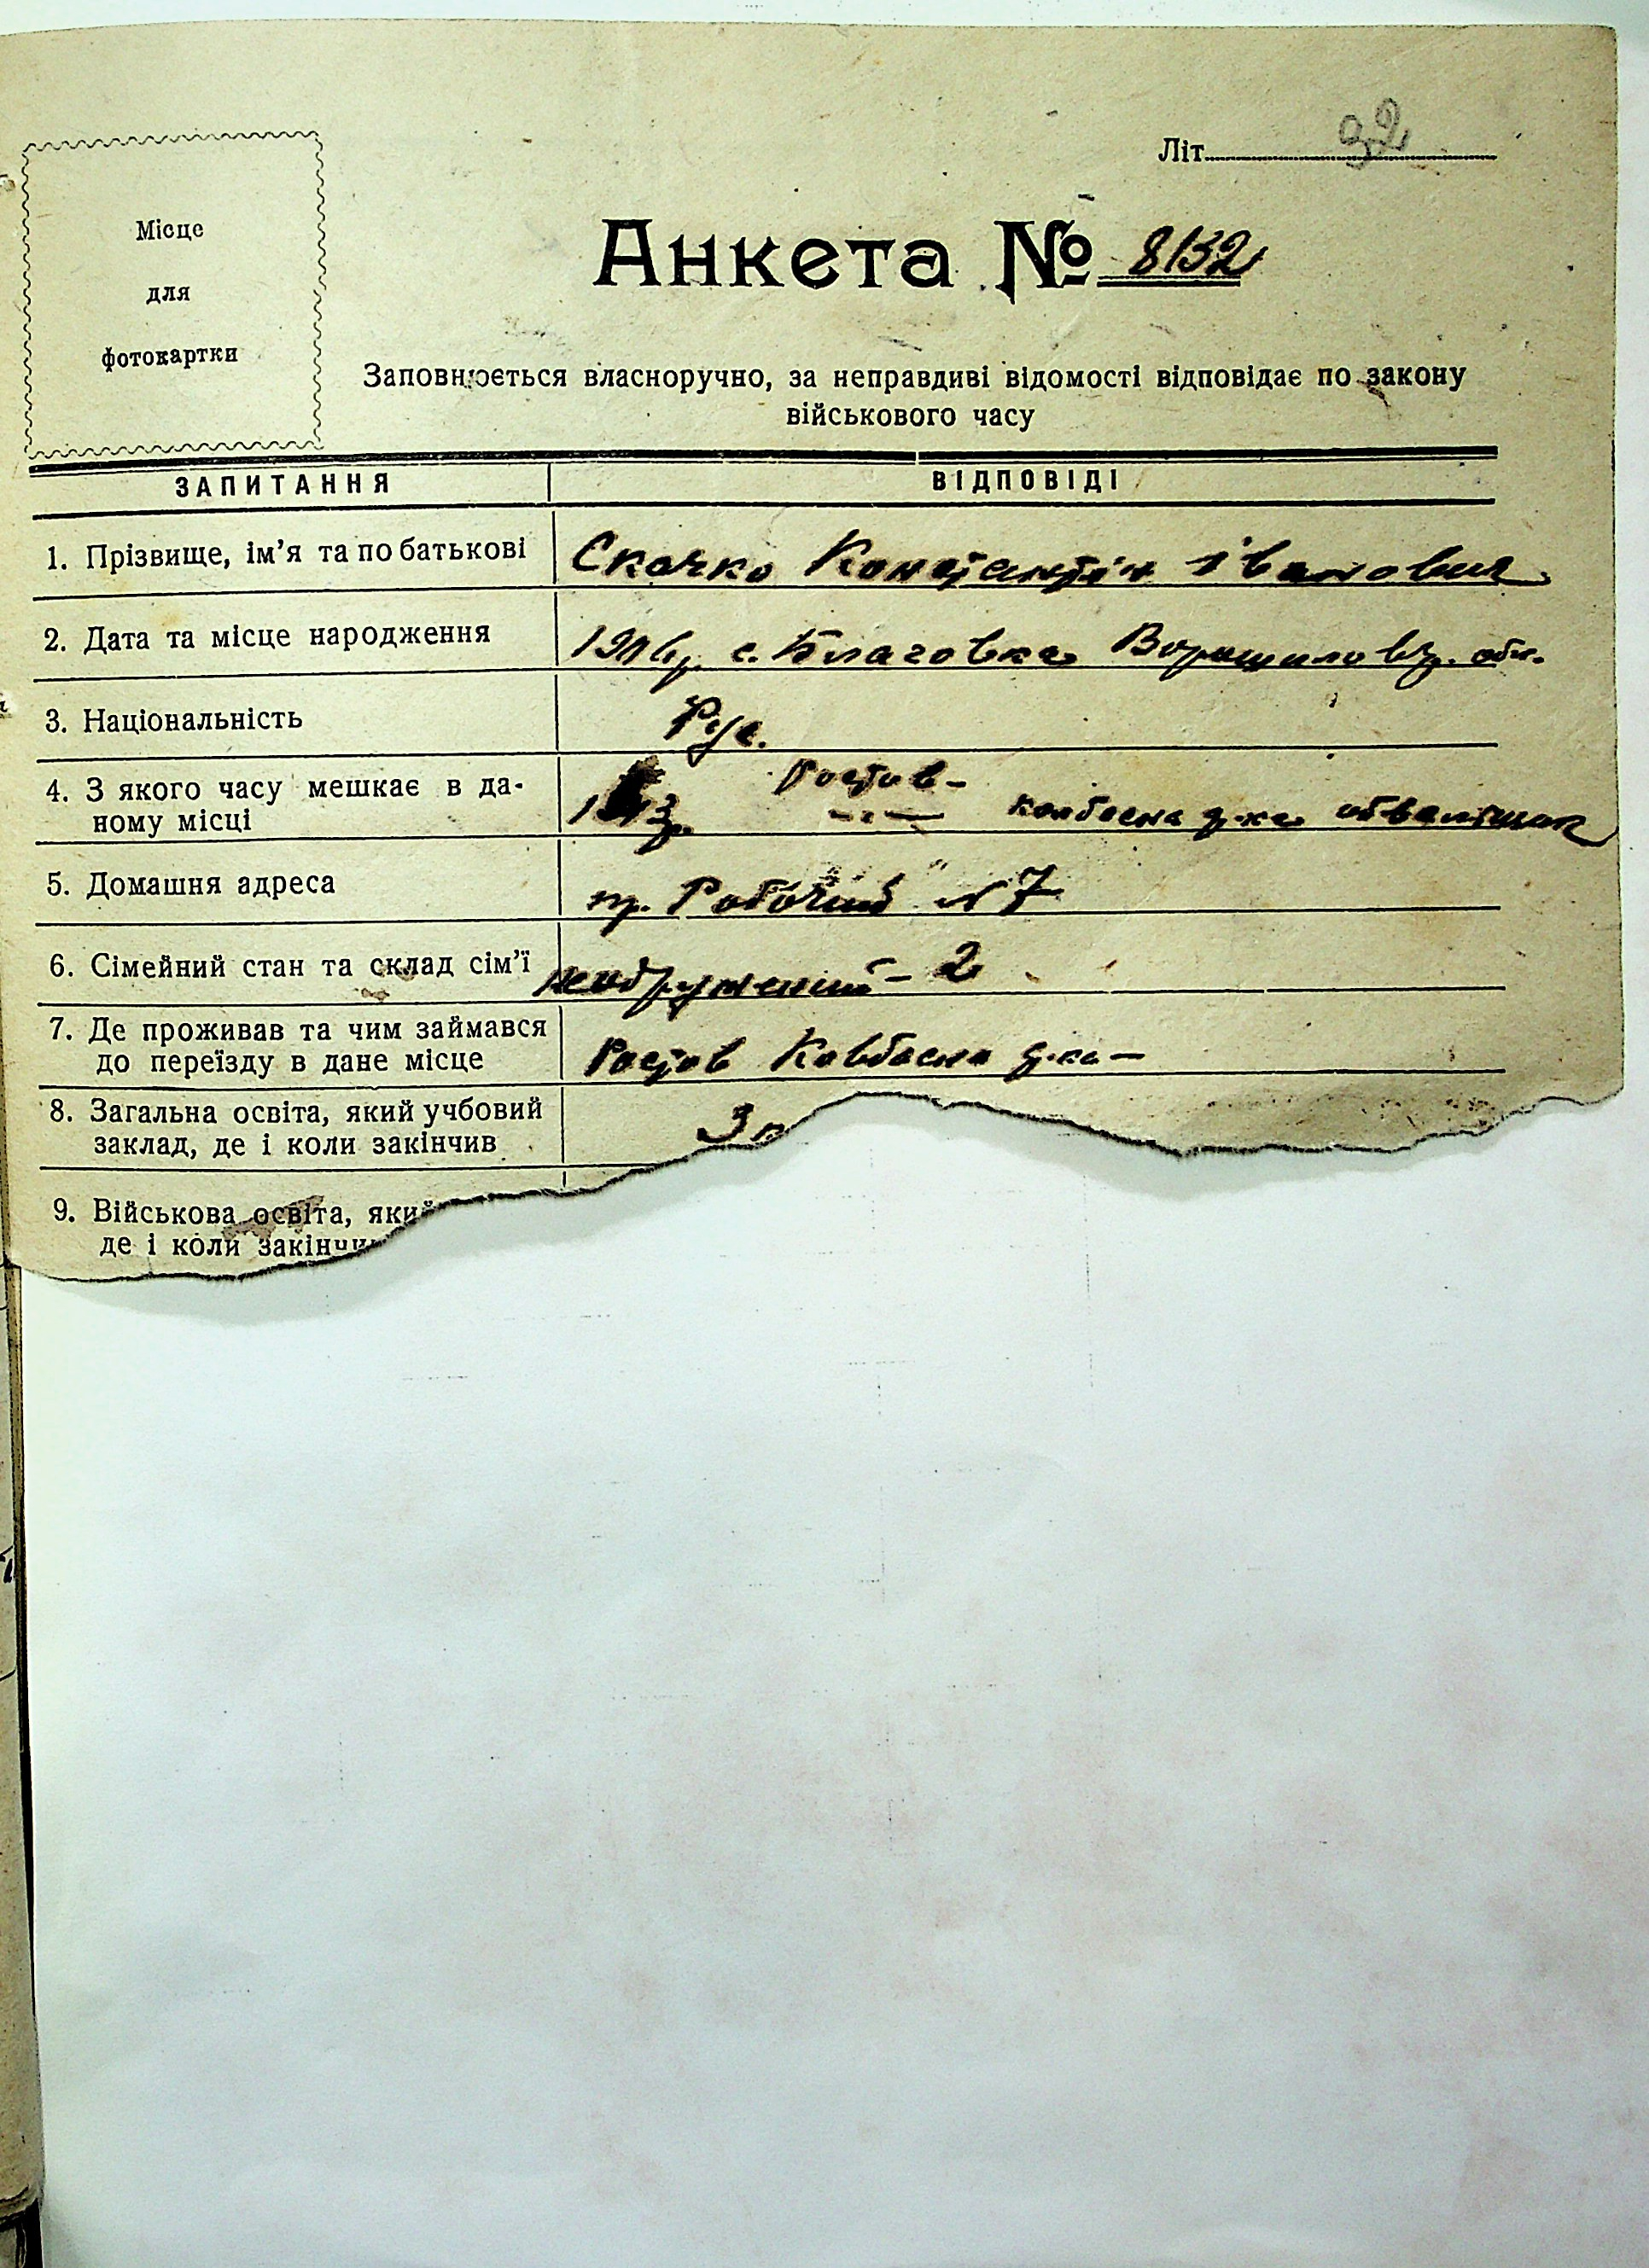 Літ. 32
Місце
для
фотокартки
Анкета № 8132
Заповнюється власноручно, за неправдиві відомості відповідає по закону
військового часу
ЗАПИТАННЯ ВІДПОВІДІ
1. Прізвище, ім'я та по батькові Скочко Констянтін Іванович
2. Дата та місце народження с. Благовка Ворошиловгр. обл.
3. Національність Рус.
4. З якого часу мешкає в да- Ростов -
ному місці ковбасна ф-ка обваліщик
5. Домашня адреса пр. Робочий № 7
6. Сімейний стан та склад сім'ї неодружений - 2
7. Де проживав та чим займався
до переїзду в дане місце Ростов Ковбасна ф-ка -
8. Загальна освіта, який учбовий 3
заклад, де і коли закінчив
9. Військова освіта, який
де і коли закінчи